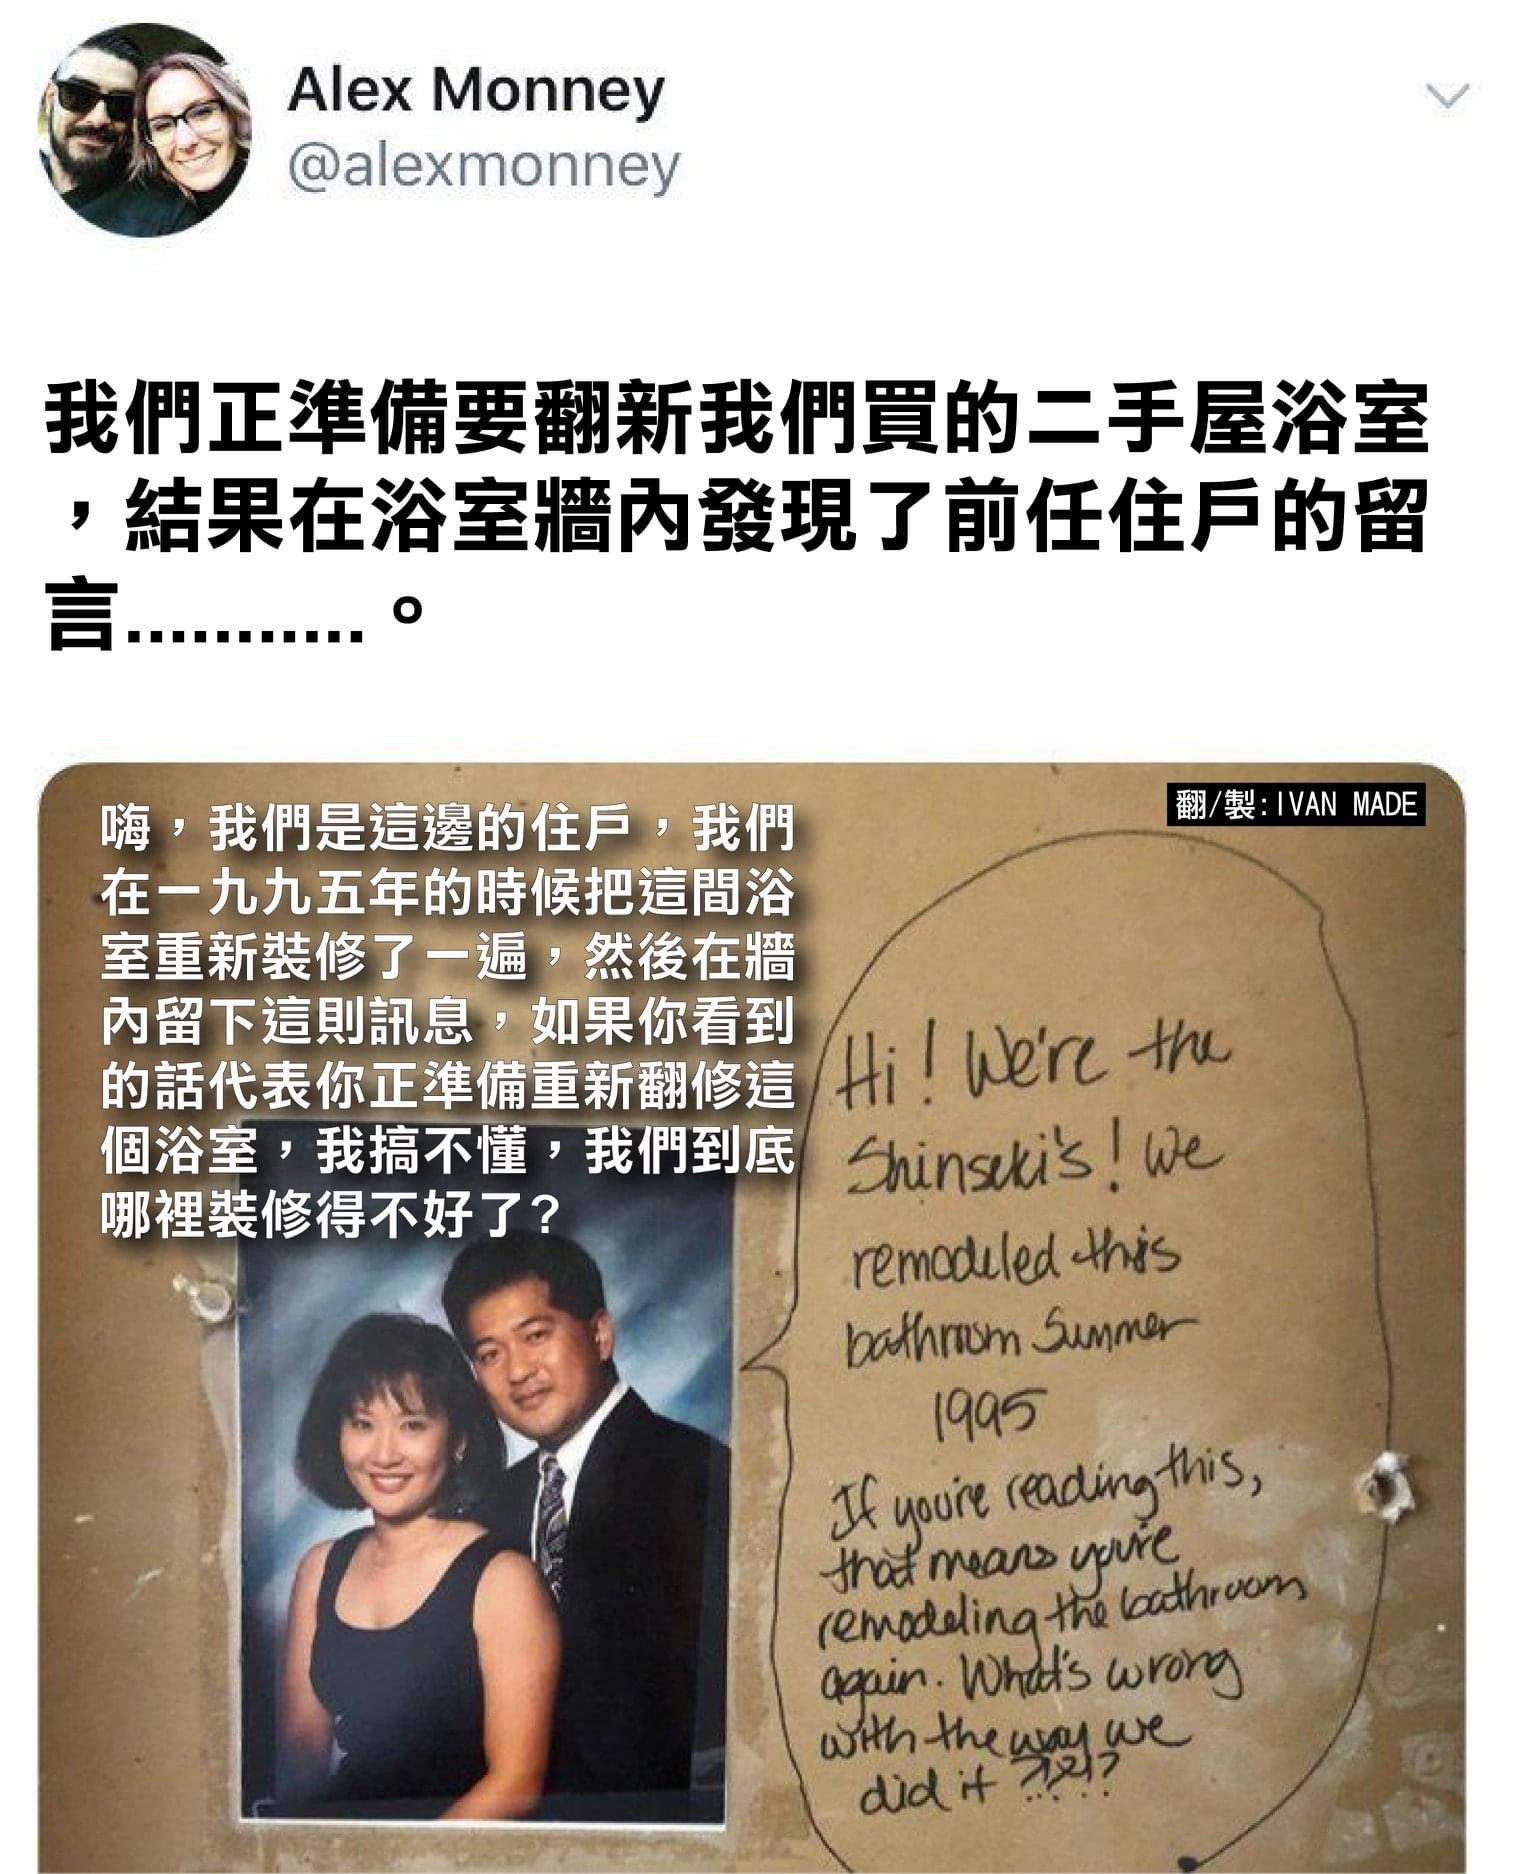 Alex Monney
@alexmonney
我們正準備要翻新我們買的二手屋浴室
，結果在浴室牆內發現了前任住戶的留
言...........。
翻/製:IVAN MADE
嗨，我們是這邊的住戶，我們
在一九九五年的時候把這間浴
室重新裝修了一遍，然後在牆
內留下這則訊息，如果你看到
的話代表你正準備重新翻修這
個浴室，我搞不懂，我們到底
哪裡裝修得不好了？
Hi! We're the
Shinseki's! We
remodeled this
bathroom Summer
1995
If you're reading this,
that means you're
remodeling the bathroom
again. What's wrong
with the way we
did it ?!?!?